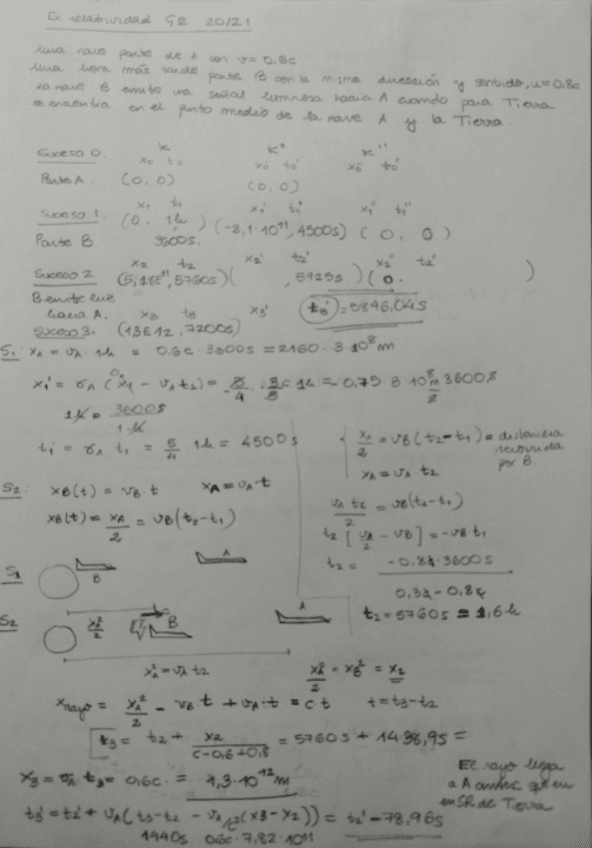 Ex relatividad G2 20/21
Una nave parte de A con v = 0,6c
Una hora más tarde parte B con la misma dirección y sentido, u = 0,8c
La nave B emite una señal luminosa hacia A cuando para Tierra
se encuentra en el punto medio de la nave A y la Tierra.
Suceso 0. K K' K''
x0 t0 x0' t0' x0'' t0''
Parte A. (0, 0) (0, 0)
x1 t1 x1' t1' x1'' t1''
Suceso 1. (0, 1h) (-8,1·10¹¹, 4500s) (0, 0)
Parte B 3600s.
x2 t2 x2' t2' x2'' t2''
Suceso 2 (5,18E¹¹, 5760s) ( , 5925s ) (0. )
B emite luz
hacia A. x3 t3 x3' t3' = 5846,04s
Suceso 3. (13E12, 7200s)
S1: xA = vA · 1h = 0,6c · 3600s = 2160 · 3·10⁸ m
t1' = γA t1 = 5/4 · 1h = 4500s
xA/2 = vB (t2 - t1) = distancia recorrida por B.
xA = vA · t2
S2: xB(t) = vB · t xA = vA · t
xB(t) = xA/2 = vB (t2 - t1)
vA t2/2 = vB (t2 - t1)
t2 [vA/2 - vB] = -vB t1
t2 = -0,8c · 3600s / 0,3c - 0,8c
t2 = 5760s = 1,6h
S1 B A
S2 xA²/2 B A
xA² = vA t2
xA²/2 = xB² = x2
xrayo = xA²/2 - vB t + vA · t = c t t = t3 - t2
t3 = t2 + x2/(c - 0,6 + 0,8) = 5760s + 1438,9s =
x3 = vA · t3 = 0,6c · = 1,3·10¹² m
El rayo llega
a A antes que en
en SR de Tierra
t3' = t2' + γA (t3 - t2 - vA/c² (x3 - x2)) = t2' - 78,96s
1440s 0,6c 7,82·10¹¹